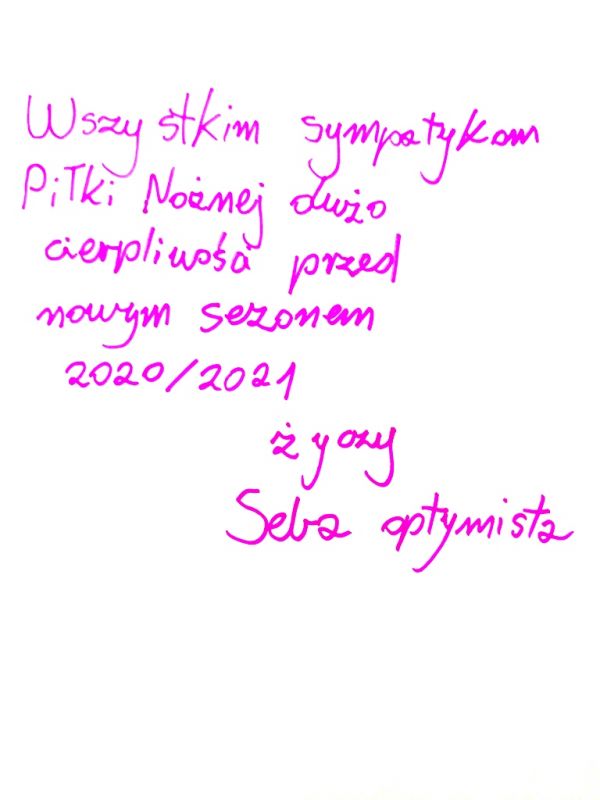 Wszystkim sympatykom
Piłki Nożnej dużo
cierpliwości przed
nowym sezonem
2020/2021
życzy
Seba optymista